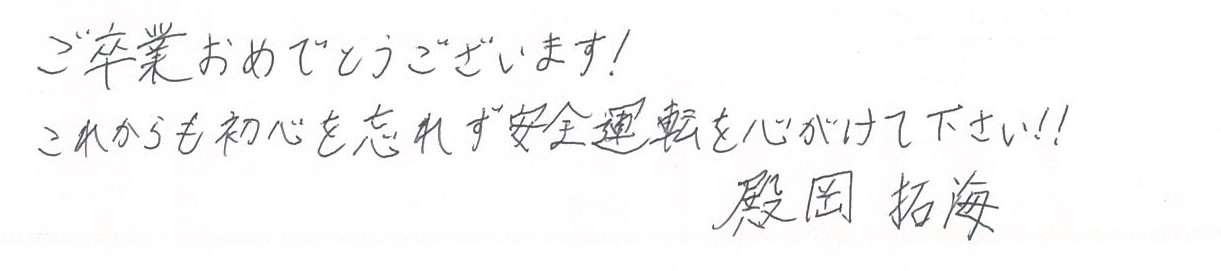 ご卒業おめでとうございます!
これからも初心を忘れず安全運転を心がけて下さい!!
殿岡 拓海